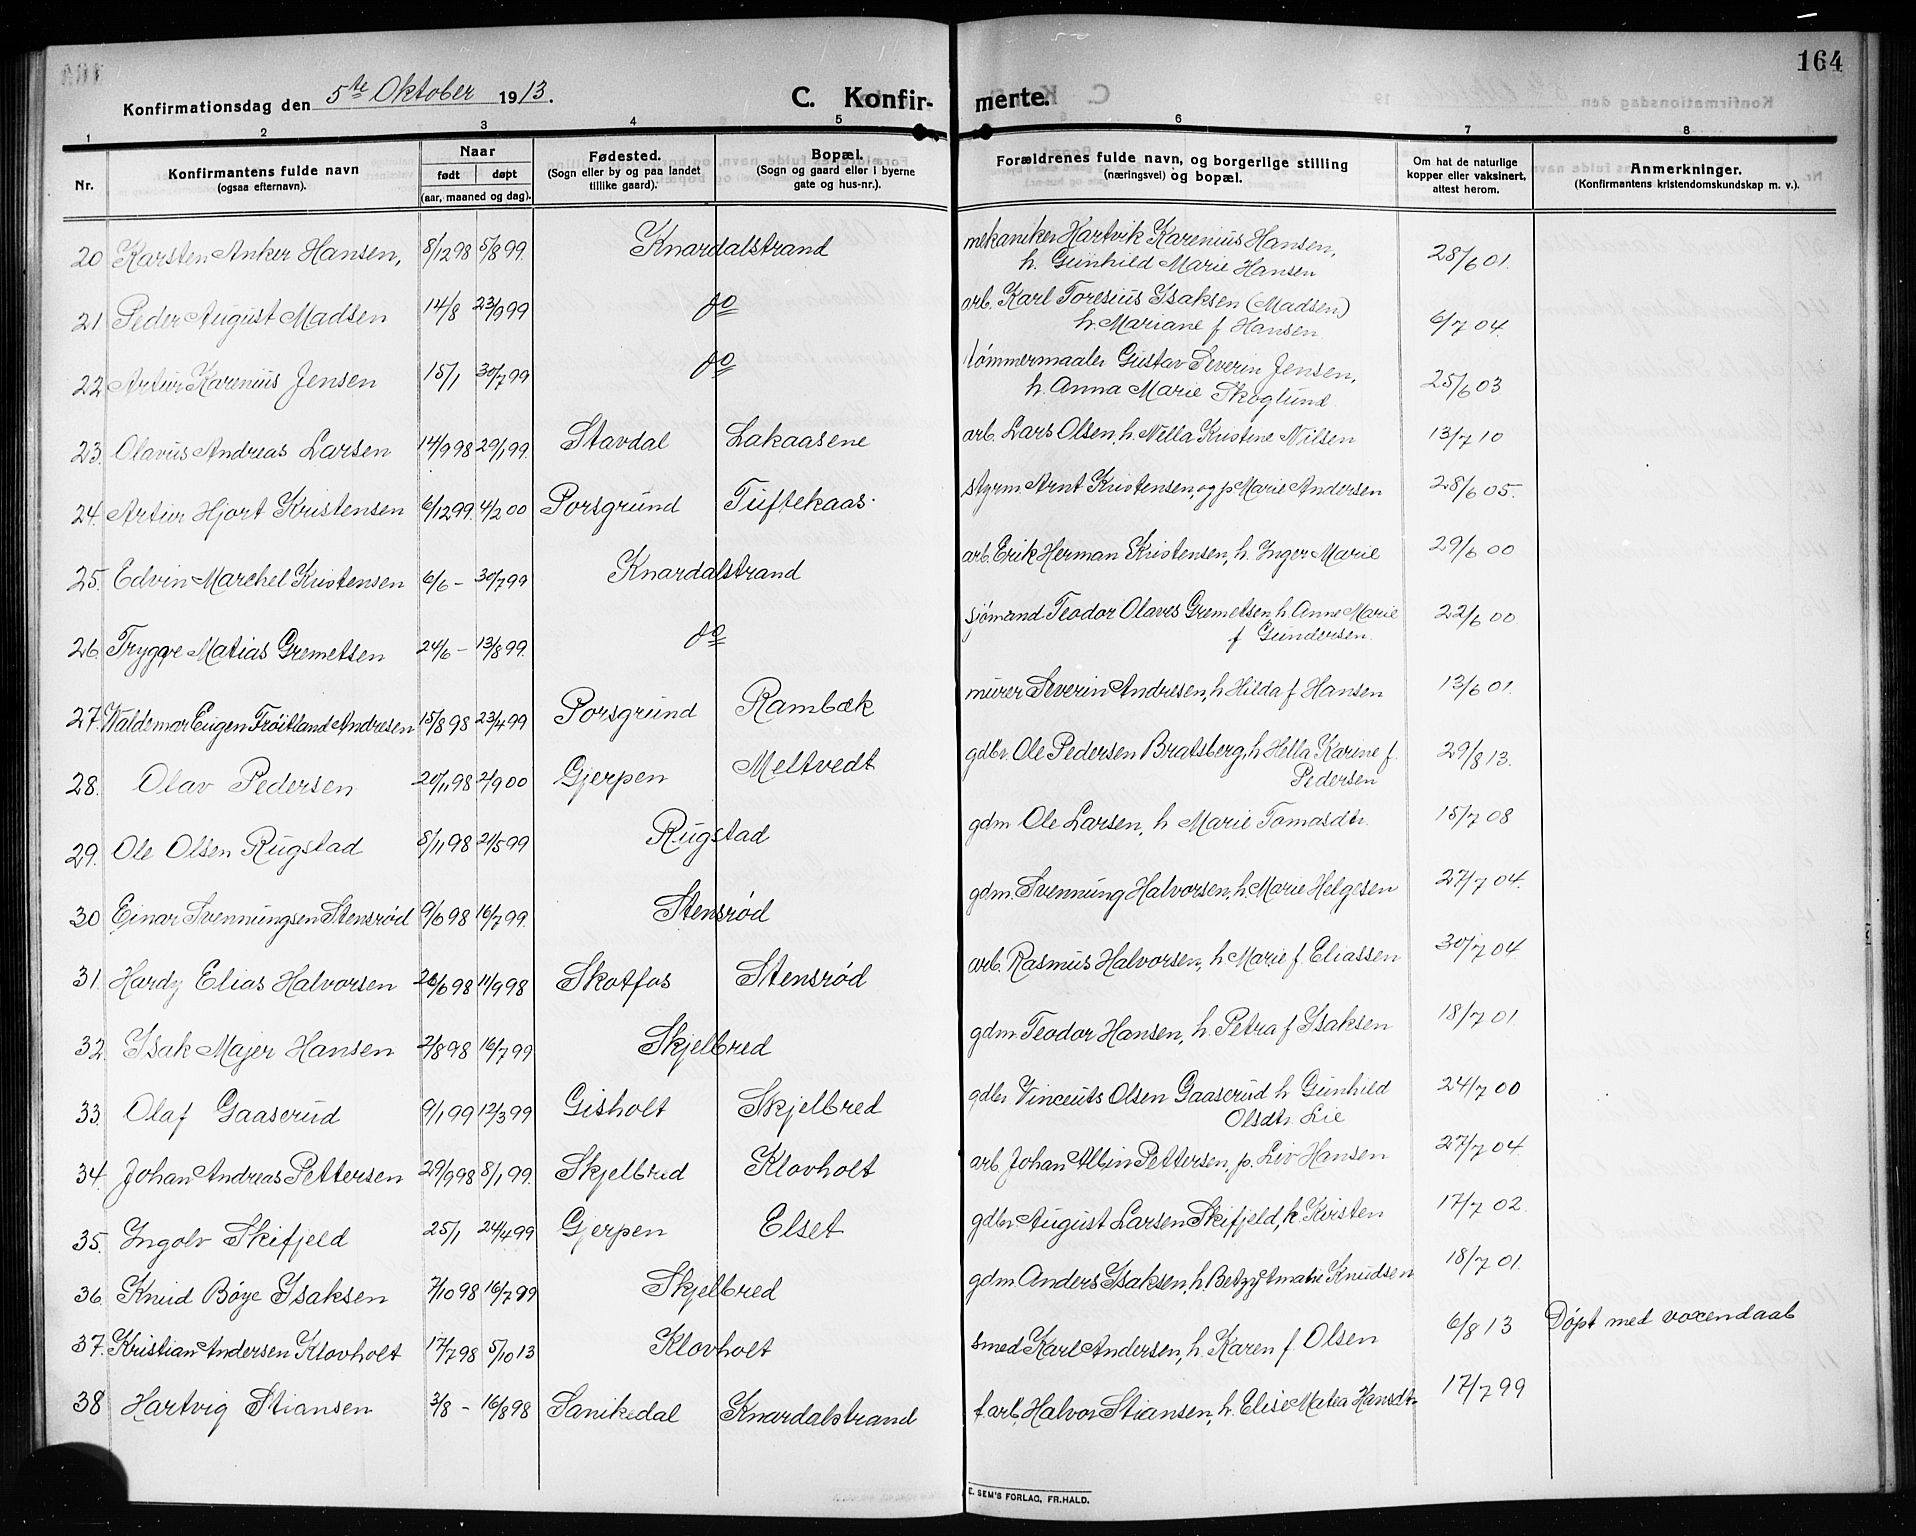 164
Konfirmationsdag den 5te Oktober 1913.
C. Konfir- merte.
1 2 3 4 5 6 7 8
Nr.
Konfirmantens fulde navn
(ogsaa efternavn).
Naar
født døpt
(aar, maaned og dag).
Fødested.
(Sogn eller by og paa landet
tillike gaard).
Bopæl.
(Sogn og gaard eller i byerne
gate og hus-nr.).
Forældrenes fulde navn, og borgerlige stilling
(næringsvei) og bopæl.
Om hat de naturlige
kopper eller vaksinert,
attest herom.
Anmerkninger.
(Konfirmantens kristendomskundskap m. v.).
20 Karsten Anker Hansen, 8/12 98 5/8 99. Knardalstrand mekaniker Hartvik Karenius Hansen, 28/6 01.
h. Gunhild Marie Hansen
21 Peder August Madsen 14/8 23/9 99 do arb. Karl Toresius Isaksen (Madsen) 6/7 04
h. Mariane f Hansen
22 Artur Karenius Jensen 15/1 30/7 99 do tømmermaaler Gustav Severin Jensen, 25/6 03
h. Anna Marie Skoglund
23. Olavus Andreas Larsen 14/9 98 29/1 99. Stavdal Lakaasene arb. Lars Olsen, h. Nella Kristine Nilsen 13/7 10
24. Artur Hjort Kristensen 6/12 99. 4/2 00 Porsgrund Tuftekaas. styrm. Arnt Kristensen, og p. Marie Andersen 28/6 05.
25. Edvin Marchel Kristensen 6/6 - 30/7 99 Knardalstrand arb. Erik Herman Kristensen, h. Inger Marie 29/6 00
26. Trygve Matias Gremetsen 24/6 - 13/8 99. do sjømand Teodor Olaves Gremetsen, h. Anne Marie 22/6 00
f Gundersen.
27. Waldemar Eugen Trøitland Andresen 15/8 98 23/4 99 Porsgrund Rambæk murer Severin Andresen, h Hilda f Hansen 13/6 01.
28. Olav Pedersen 20/11 98 2/9 00 Gjerpen Meltvedt gdbr. Ole Pedersen Bratsberg, h Hella Karine f. 29/8 13.
Pedersen
29. Ole Olsen Rugstad 8/11 98 21/5 99 Rugstad gdm. Ole Larsen, h Marie Tomasdtr. 15/7 08
30 Ejnar Svennungsen Stensrød 9/6 98 16/7 99. Stensrød gdm. Svennung Halvorsen, h. Marie Helgesen 27/7 04.
31. Hardy Elias Halvorsen 26/6 98 11/9 98 Skotfos Stensrød arb. Rasmus Halvorsen, h Marie f. Eliassen 30/7 04.
32. Isak Majer Hansen 2/8 98 16/7 99 Skjelbred gdm. Teodor Hansen, h. Petra f Isaksen 18/7 01.
33. Olaf Gaaserud 9/1 99 12/3 99 Gisholt Skjelbred gdbr Vincents Olsen Gaaserud h Gunhild 24/7 00
Olsdtr. Lie
34. Johan Andreas Pettersen 29/9 98 8/1 99. Skjelbred Klovholt arb. Johan Albin Pettersen, p. Liv Hansen 27/7 04.
35. Ingolv Skifjeld 25/1 24/4 99 Gjerpen Elset gdbr August Larsen Skifjeld, h. Kirsten 17/7 02.
36. Knud Bøye Isaksen 7/10 98 16/7 99 Skjelbred gdm. Anders Isaksen, h. Betzy Amalie Knudsen 18/7 01.
37. Kristian Andersen Klovholt 17/7 98 5/10 13 Klovholt smed Karl Andersen, h. Karen f. Olsen 6/8 13 Døpt med voxendaab
38 Hartvig Stiansen 3/8 - 16/8 98 Sanikedal Knardalstrand f. arb. Halvor Stiansen, h. Elise Matea Hansdtr 17/7 99
E. SEM'S FORLAG, FR.HALD.